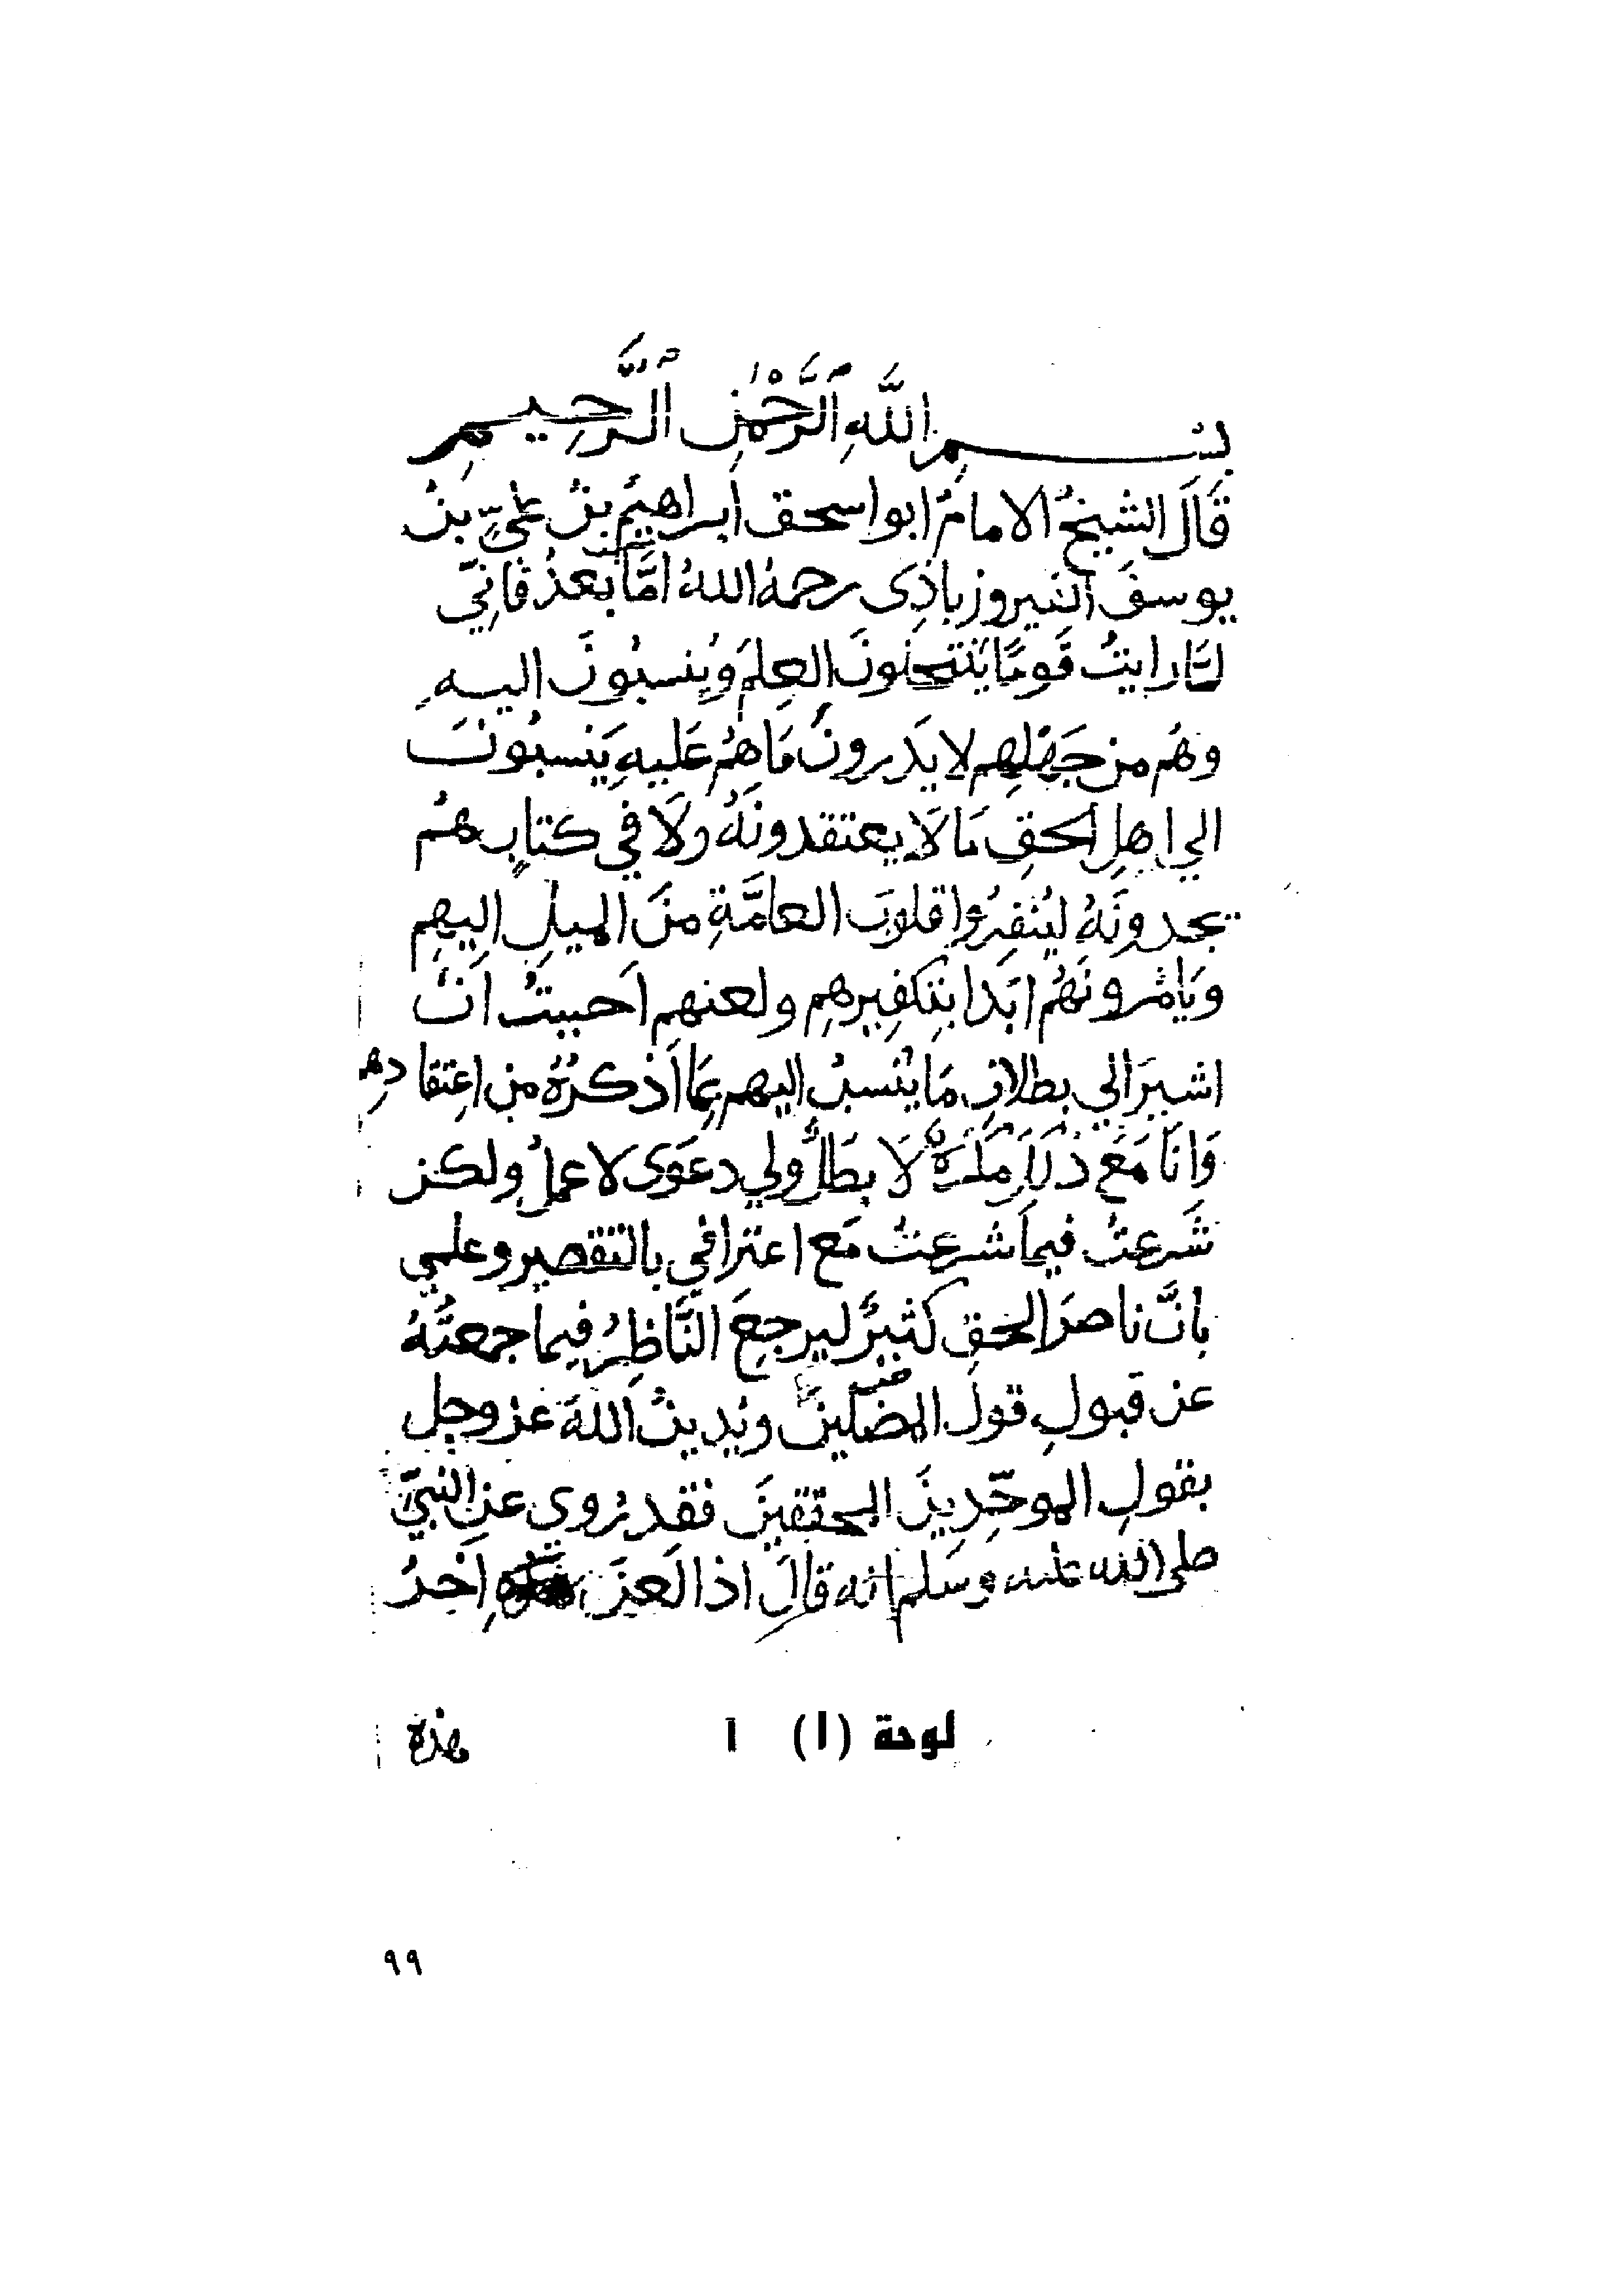 بِسْمِ اللَّهِ الرَّحْمٰنِ الرَّحِيمِ
قَالَ الشيخُ الامامُ ابو اسحق ابراهيمُ بنُ عليِّ بن
يوسفَ الفيروزباذى رحمهُ اللهُ امَّا بعدُ فانِّي
لمَّا رايتُ قومًا يَنتحلونَ العِلمَ ويُنسبُونَ اليهِ
وهُم من جَهْلِهِم لا يَدرونَ مَا هُم عَليهِ يَنسبُونَ
الي اهلِ الحقِ مَا لَا يعتقدونَهُ ولَا في كتابٍ هُم
يجدونَهُ ليُنفِرُوا قلوبَ العامَّةِ منَ الميلِ اليهِم
ويَامُرونَهُم ابَدا بتكفِيرهِم ولعنهم احببتُ انْ
اشيرَ الي بطلانِ مَا يُنسبُ اليهم بمَا اذكرُهُ من اعتقادهِم
وَانَا مَعَ ذلكَ لَا بطَلٌ ولي دعوَى لا عملٌ ولكن
شَرعتُ فيما شرعتُ مَع اعترافي بالتقصير وعلمي
بانَّ ناصرَ الحقِ كثيرٌ ليرجعَ النَّاظِرُ فيما جمعتُهُ
عن قبولِ قول المضلينَ ويُدينُ اللهَ عز وجل
بقولِ الموحِّدِينَ المحققينَ فقد رُوي عنِ النبيِّ
صلى الله عليه وسلم انه قالَ اذا لعنَ اخرُ
لوحة (١) أ
هذه
٩٩